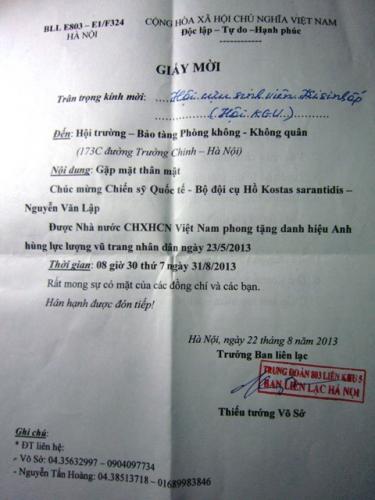 BLL E803 – E1/F324
HÀ NỘI
CỘNG HÒA XÃ HỘI CHỦ NGHĨA VIỆT NAM
Độc lập – Tự do –Hạnh phúc
GIẤY MỜI
Trân trọng kính mời: Hội cựu sinh viên
(Hội KGU)
Đến: Hội trường – Bảo tàng Phòng không - Không quân
(173C đường Trường Chinh – Hà Nội)
Nội dung: Gặp mặt thân mật
Chúc mừng Chiến sỹ Quốc tế - Bộ đội cụ Hồ Kostas sarantidis –
Nguyễn Văn Lập
Được Nhà nước CHXHCN Việt Nam phong tặng danh hiệu Anh
hùng lực lượng vũ trang nhân dân ngày 23/5/2013
Thời gian: 08 giờ 30 thứ 7 ngày 31/8/2013
Rất mong sự có mặt của các đồng chí và các bạn.
Hân hạnh được đón tiếp!
Hà Nội, ngày 22 tháng 8 năm 2013
Trưởng Ban liên lạc
TRUNG ĐOÀN 803 LIÊN KHU 5
BAN LIÊN LẠC HÀ NỘI
Thiếu tướng Võ Sở
Ghi chú:
* ĐT liên hệ:
- Võ Sở: 04.35632997 – 0904097734
- Nguyễn Tấn Hoàng: 04.38513718 – 01689983846